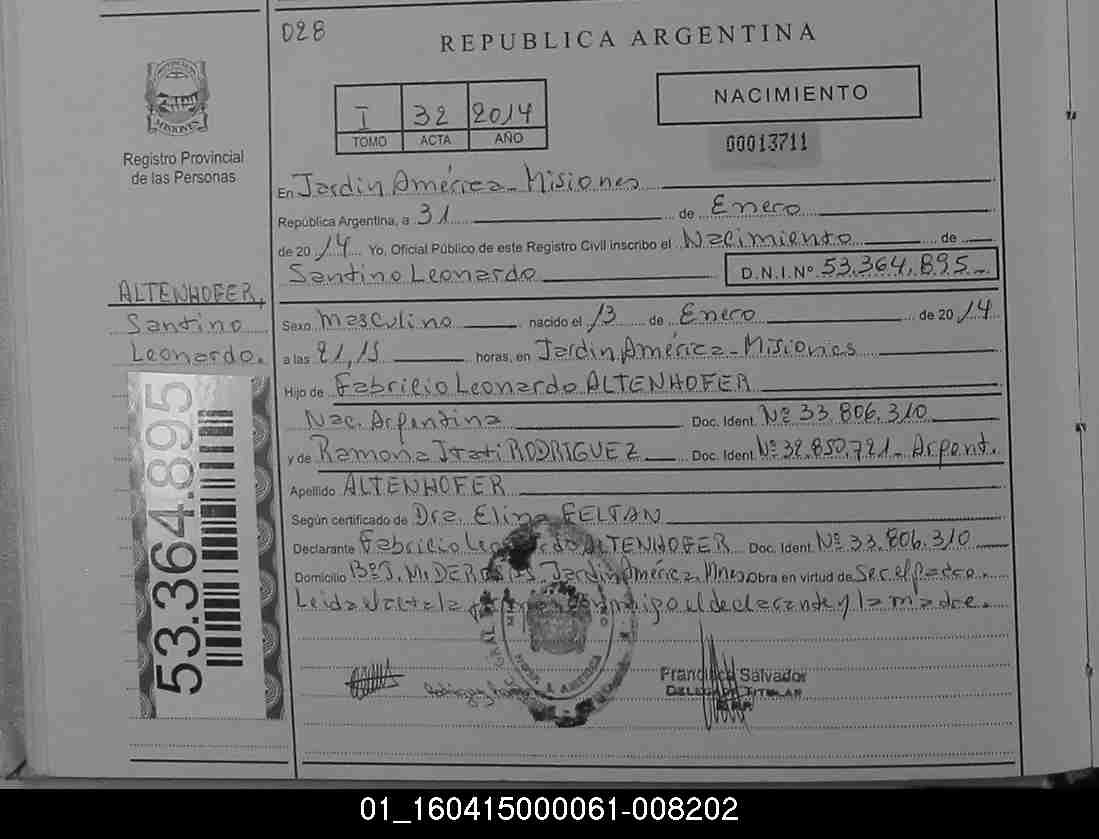 028
REPUBLICA ARGENTINA
I 32 2014
TOMO ACTA AÑO
NACIMIENTO
00013711
MISIONES
Registro Provincial
de las Personas
En Jardin América - Misiones
República Argentina, a 31 de Enero
de 2014 Yo, Oficial Público de este Registro Civil inscribo el Nacimiento de
Santino Leonardo D.N.I.Nº 53.364.895.-
ALTENHOFER,
Santino
Leonardo.
Sexo Masculino nacido el 13 de Enero de 2014
a las 21,15 horas, en Jardin América - Misiones
Hijo de Fabricio Leonardo ALTENHOFER
Nac. Argentina Doc. Ident. Nº 33.806.310
y de Ramona Itati RODRIGUEZ Doc. Ident. Nº 32.850.721- Argent.
Apellido ALTENHOFER
Según certificado de Dra. Elina FELTAN
Declarante Fabricio Leonardo ALTENHOFER Doc. Ident. Nº 33.806.310
Domicilio Bº J. M. DE Jardin América. Mnes Obra en virtud de Ser el padre.
Leida el acta la conmigo el declarante y la madre.
53.364.895
Francisco Salvador
DELEGADO TITULAR
01_160415000061-008202